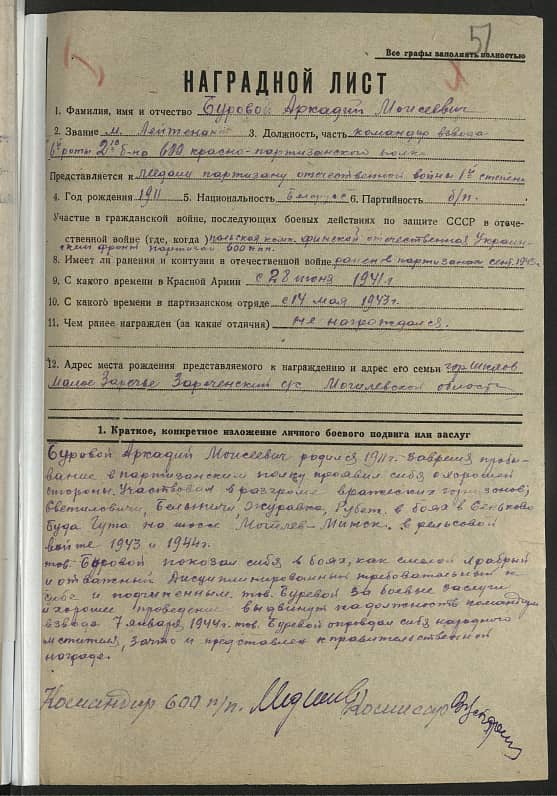 51
Все графы заполнять полностью
НАГРАДНОЙ ЛИСТ
1. Фамилия, имя и отчество Буровой Аркадий Моисеевич
2. Звание м. Лейтенант 3. Должность, часть командир взвода
6й роты 2го б-на 600 красно-партизанского полка
Представляется к медали партизану отечественной войны 1й степени
4. Год рождения 1911 5. Национальность Белорус 6. Партийность б/п.
Участие в гражданской войне, последующих боевых действиях по защите СССР в отече-
ственной войне (где, когда) польская комп. финской отечественная Украин-
ский фронт партизан 600 п.п.
8. Имеет ли ранения и контузии в отечественной войне ранен в партизанах сент.
9. С какого времени в Красной Армии с 28 июня 1941 г
10. С какого времени в партизанском отряде с 14 мая 1943 г.
11. Чем ранее награжден (за какие отличия) не награждался.
12. Адрес места рождения представляемого к награждению и адрес его семьи гор Шклов
Малое Заречье Зареченский с/с Могилевской области
1. Краткое, конкретное изложение личного боевого подвига или заслуг
Буровой Аркадий Моисеевич родился 1911 г. За время пребы-
вание в партизанским полку проявил себя с хорошей
стороны. Участвовал в разгроме вражеских гарнизонов;
Светиловичи, Белыничи, Журавка, в боях в Сеньково
Буда Гута на шоссе Могилев-Минск. в рельсовой
войне 1943 и 1944 г.
тов. Буровой показал себя в боях, как смелый храбрый
и отважный дисциплинированный требовательный к
себе и подчиненным. тов. Буровой за боевые заслуги
и хорошее проведение выдвинут на должность командира
взвода 7 января 1944 г. тов. Буровой оправдал себя народного
мстителя, за что и представлен к правительственной
награде.
Командир 600 п/п. Комиссар